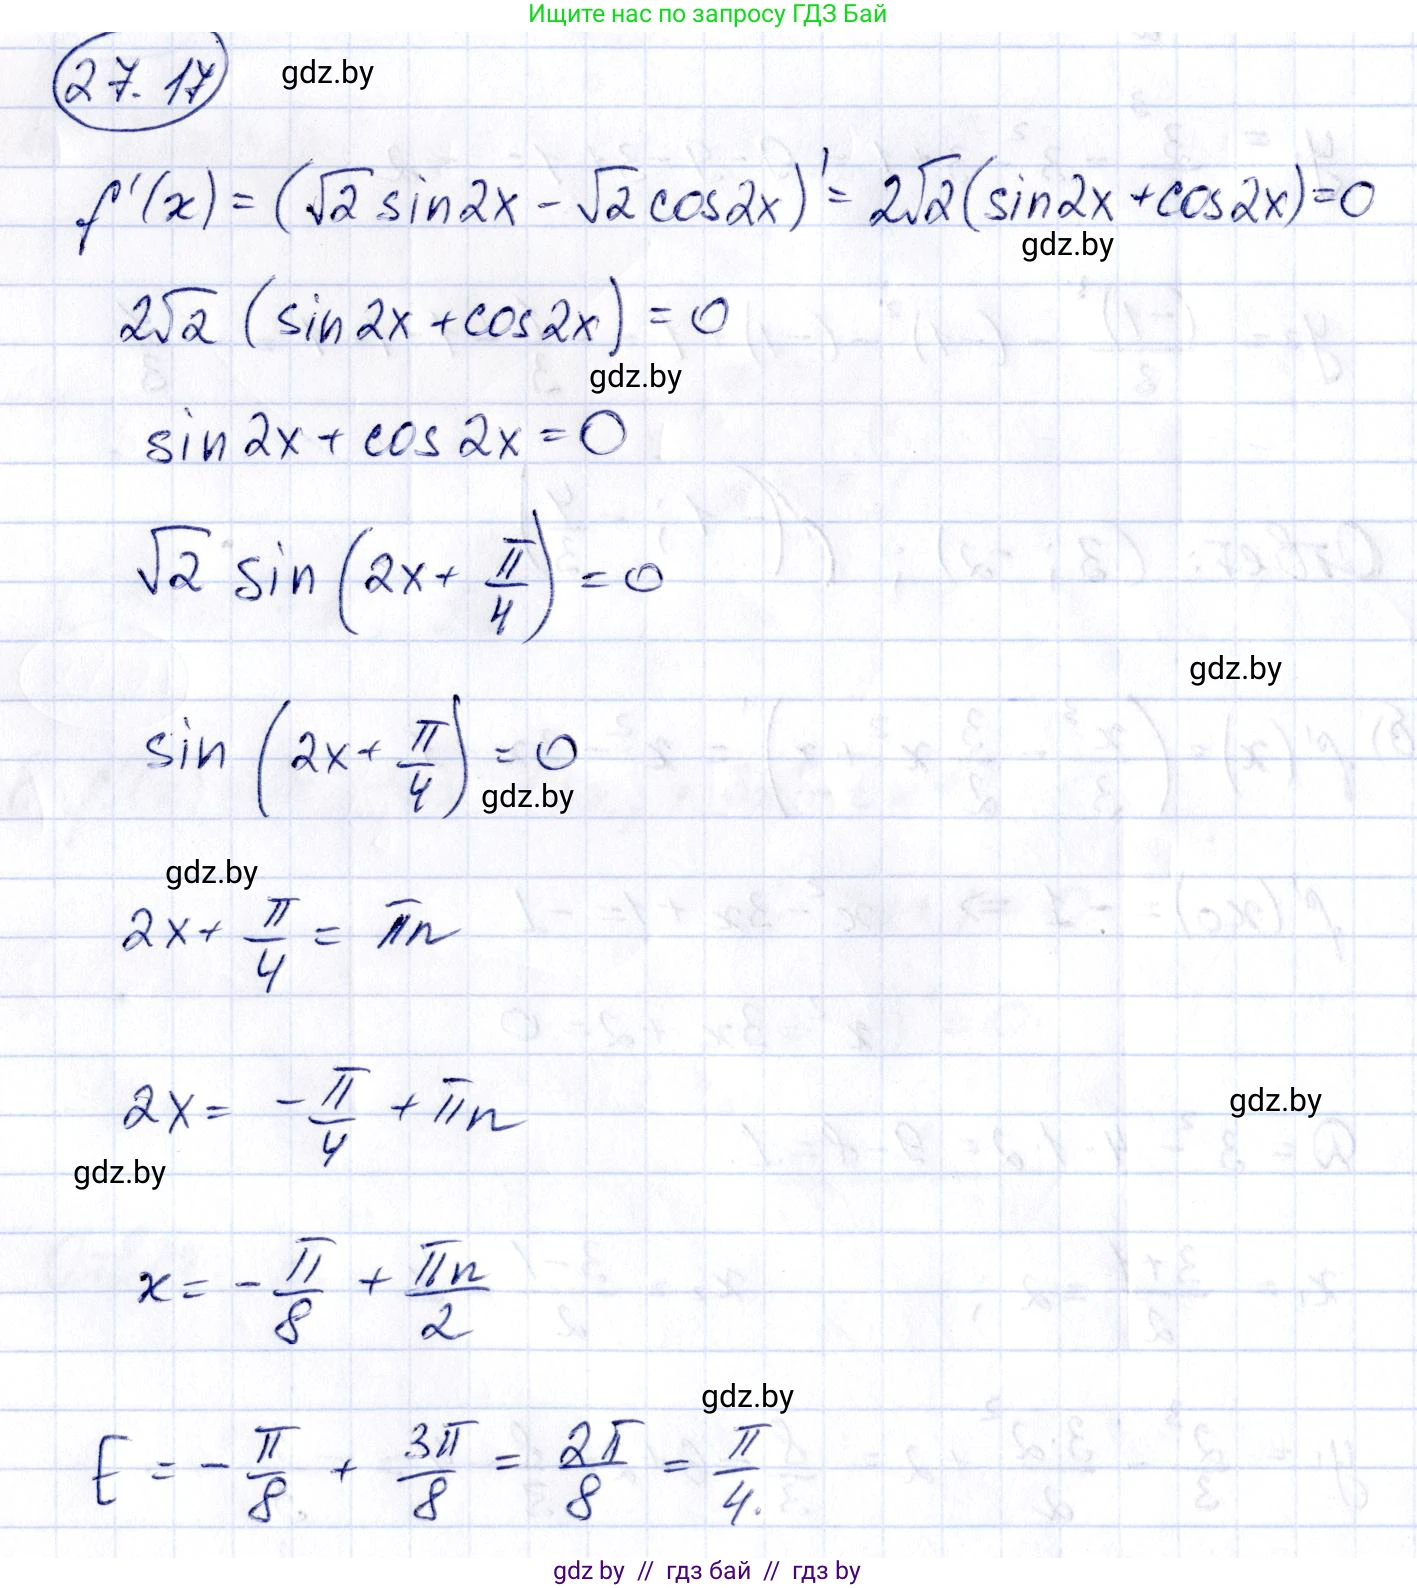 Ищите нас по запросу ГДЗ Бай
27.17 gdz.by
f'(x) = (√2 sin2x - √2 cos2x)' = 2√2(sin2x + cos2x) = 0
gdz.by
2√2 (sin2x + cos2x) = 0
gdz.by
sin2x + cos2x = 0
√2 sin(2x + π/4) = 0
gdz.by
sin(2x + π/4) = 0
gdz.by
gdz.by
2x + π/4 = πn
2x = -π/4 + πn
gdz.by
gdz.by
x = -π/8 + πn/2
gdz.by
Σ = -π/8 + 3π/8 = 2π/8 = π/4.
gdz.by // гдз бай // гдз by